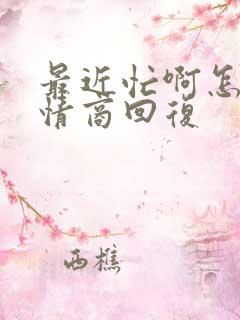 最近忙啊怎
情商回復
西樵